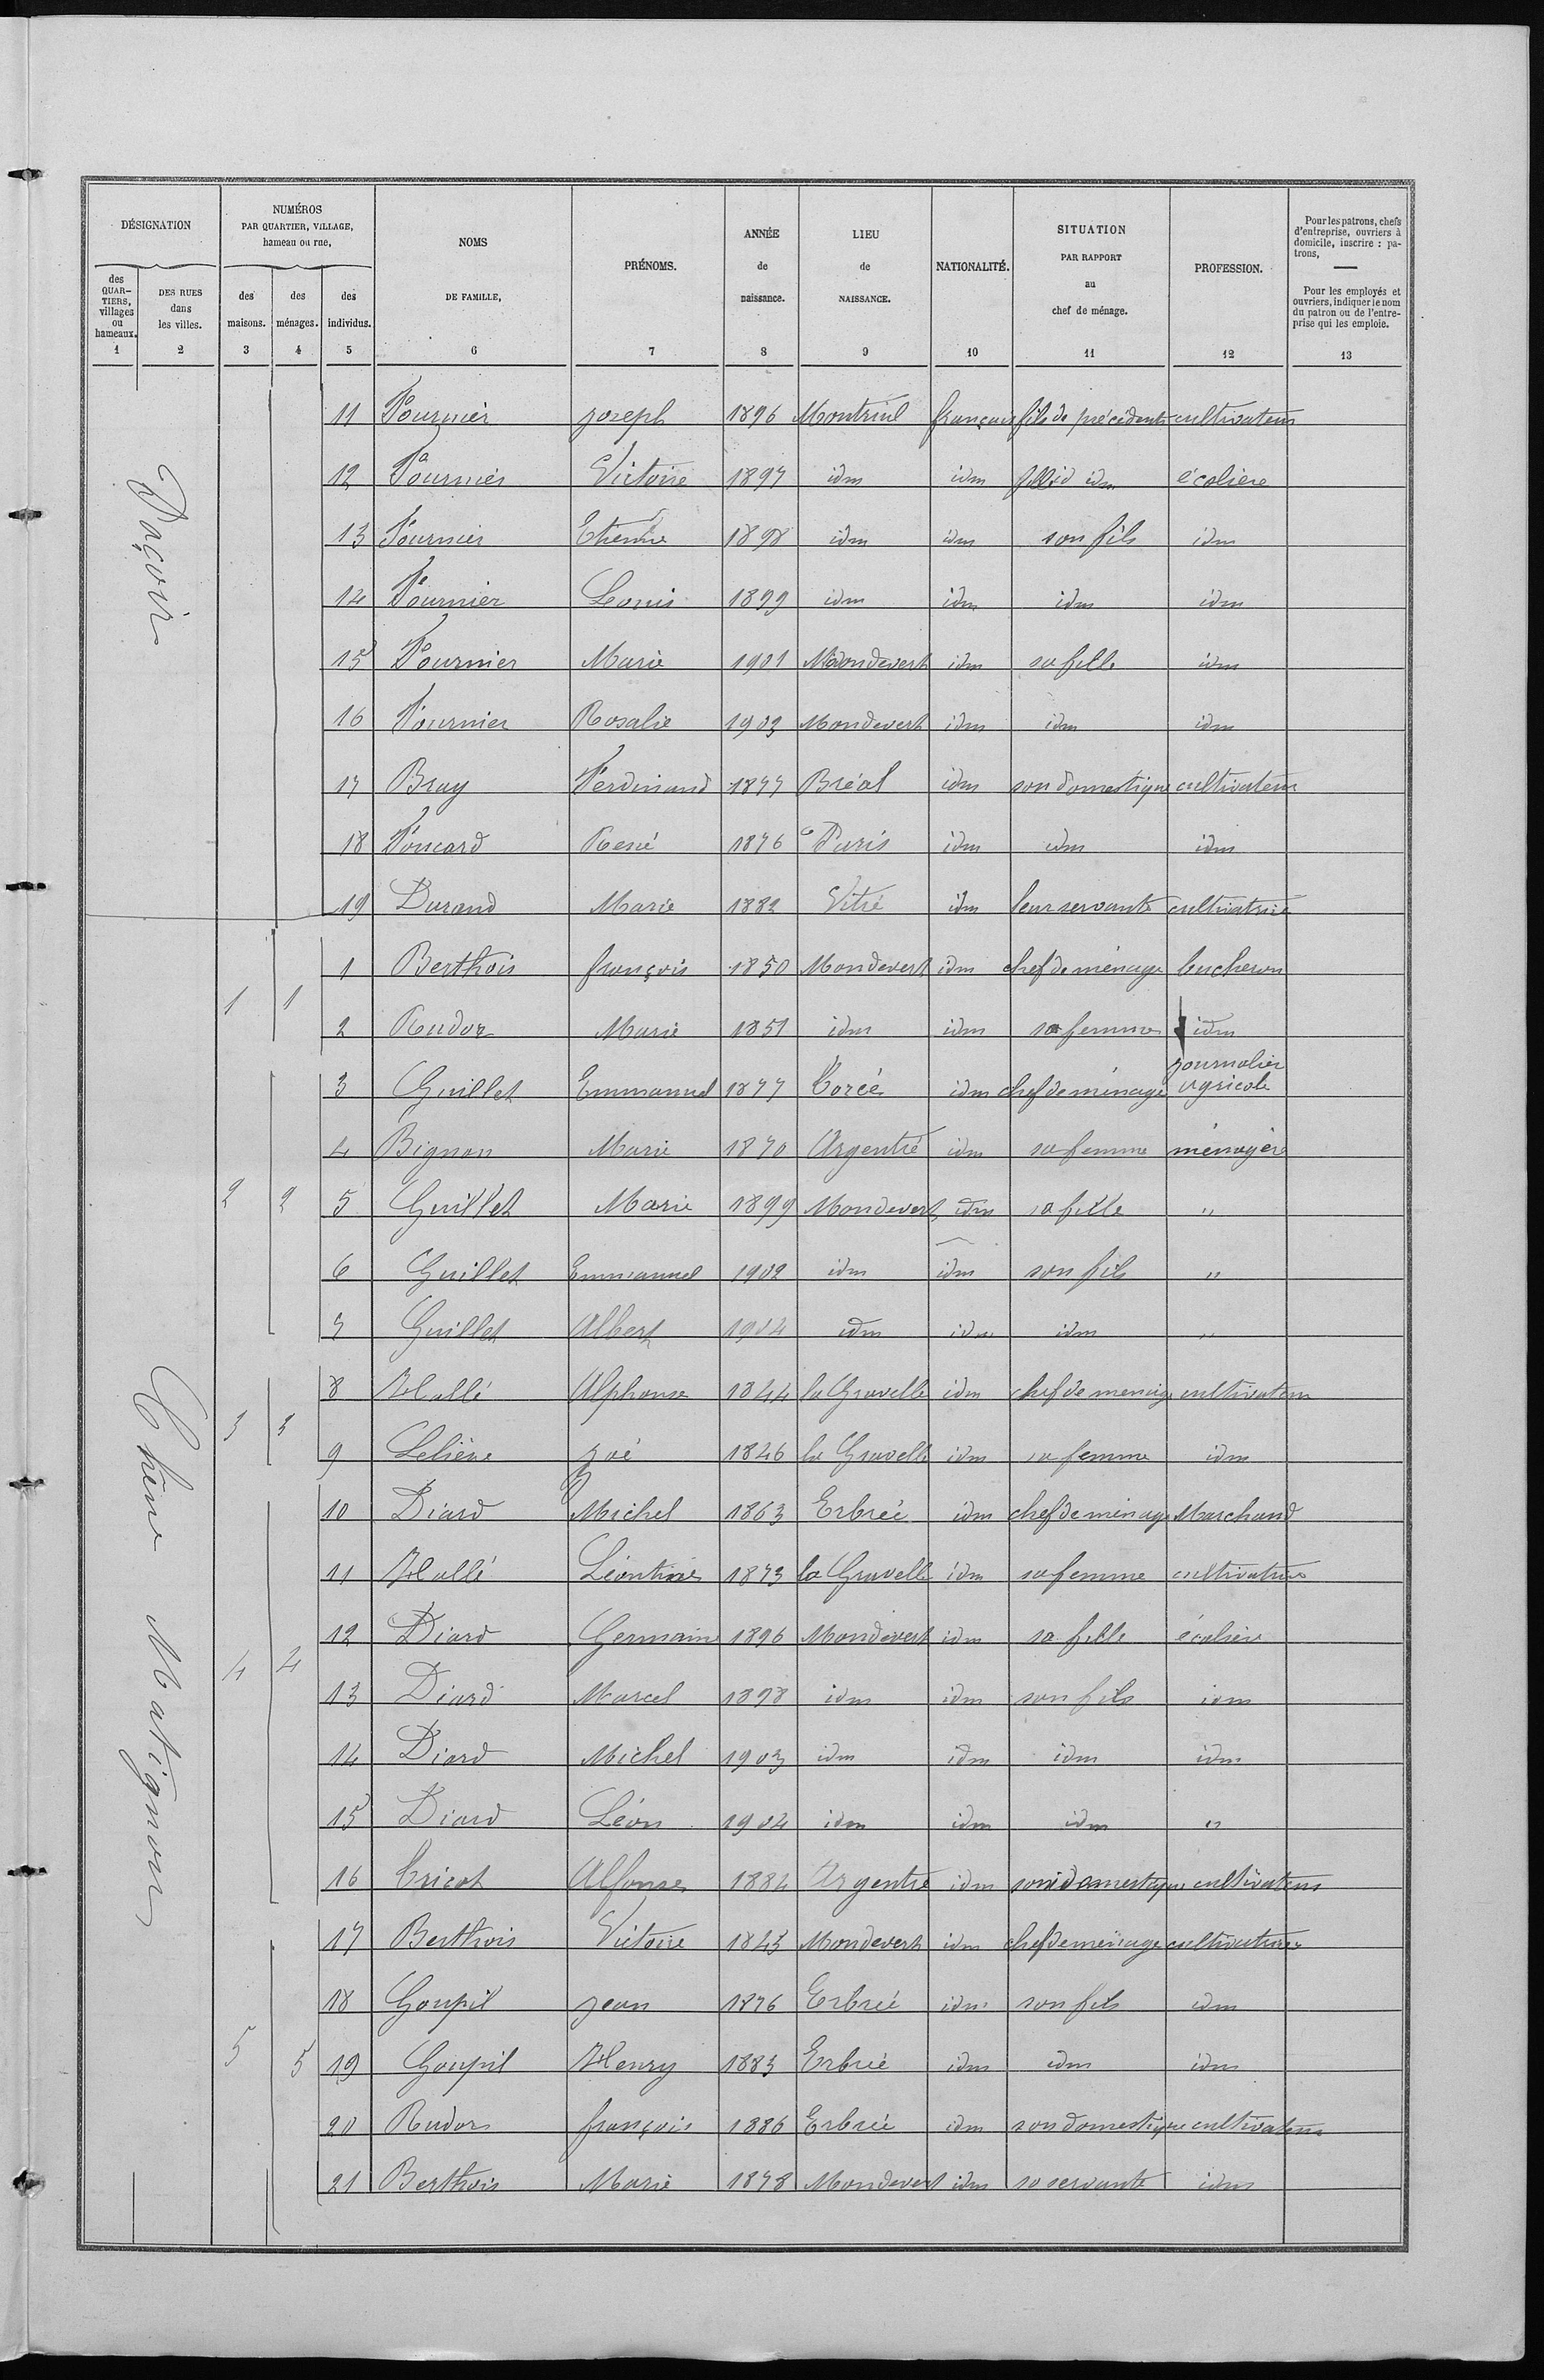 DÉSIGNATION
des QUARTIERS, villages ou hameaux. 1
DES RUES dans les villes. 2
NUMÉROS PAR QUARTIER, VILLAGE, hameau ou rue,
des maisons. 3
des ménages. 4
des individus. 5
NOMS DE FAMILLE, 6
PRÉNOMS. 7
ANNÉE de naissance. 8
LIEU de NAISSANCE. 9
NATIONALITÉ. 10
SITUATION PAR RAPPORT au chef de ménage. 11
PROFESSION. 12
Pour les patrons, chefs d'entreprise, ouvriers à domicile, inscrire : patrons,
Pour les employés et ouvriers, indiquer le nom du patron ou de l'entreprise qui les emploie. 13
11 Fournier joseph 1896 Montreul français fils de précédents cultivateur
12 Fournier Victoire 1897 idm idm idm écoliere
13 Fournier Etienne 1898 idm idm son fils idm
14 Fournier Louis 1899 idm idm idm idm
15 Fournier Marie 1901 Mondevert idm sa fille idm
16 Fournier Rosalie 1903 Mondevert idm idm idm
17 Bray Ferdinand 1877 Bréal idm son domestique cultivateur
18 René 1876 Paris idm idm idm
19 Durand Marie 1882 Vitré idm leur servante cultivatrice
1 1 1 Berthois françois 1850 Mondevert idm chef de ménage bucheron
2 Rudor Marie 1851 idm idm sa femme idm
3 Guillet Emmanuel 1877 Torcé idm chef de ménage journalier agricole
4 Bignon Marie 1870 Argentré idm sa femme ménagère
2 2 5 Guillet Marie 1899 Mondevert idm sa fille "
6 Guillet Emmanuel 1902 idm idm son fils "
7 Guillet Albert 1904 idm idm idm "
8 Hallé Alphonse 1844 la Gravelle idm chef de menage cultivateur
3 3 9 Lelièvre zoé 1846 la Gravelle idm sa femme idm
10 Diard Michel 1863 Erbrée idm chef de ménage Marchand
11 Hallé Léontine 1873 la Gravelle idm sa femme cultivatrice
12 Diard Germaine 1896 Mondevert idm sa fille écolière
4 4 13 Diard Marcel 1898 idm idm son fils idm
14 Diard Michel 1903 idm idm idm idm
15 Diard Léon 1904 idm idm idm "
16 Tricot Alfonse 1884 Argentré idm son domestique cultivateur
17 Berthois Victoire 1843 Mondevert idm chef de ménage cultivatrice
18 Goupil jean 1876 Erbrée idm son fils idm
5 5 19 Goupil Henry 1883 Erbrée idm idm idm
20 Rudor françois 1886 Erbrée idm son domestique cultivateur
21 Berthois Marie 1878 Mondevert idm sa servante idm
Chêne Matignon